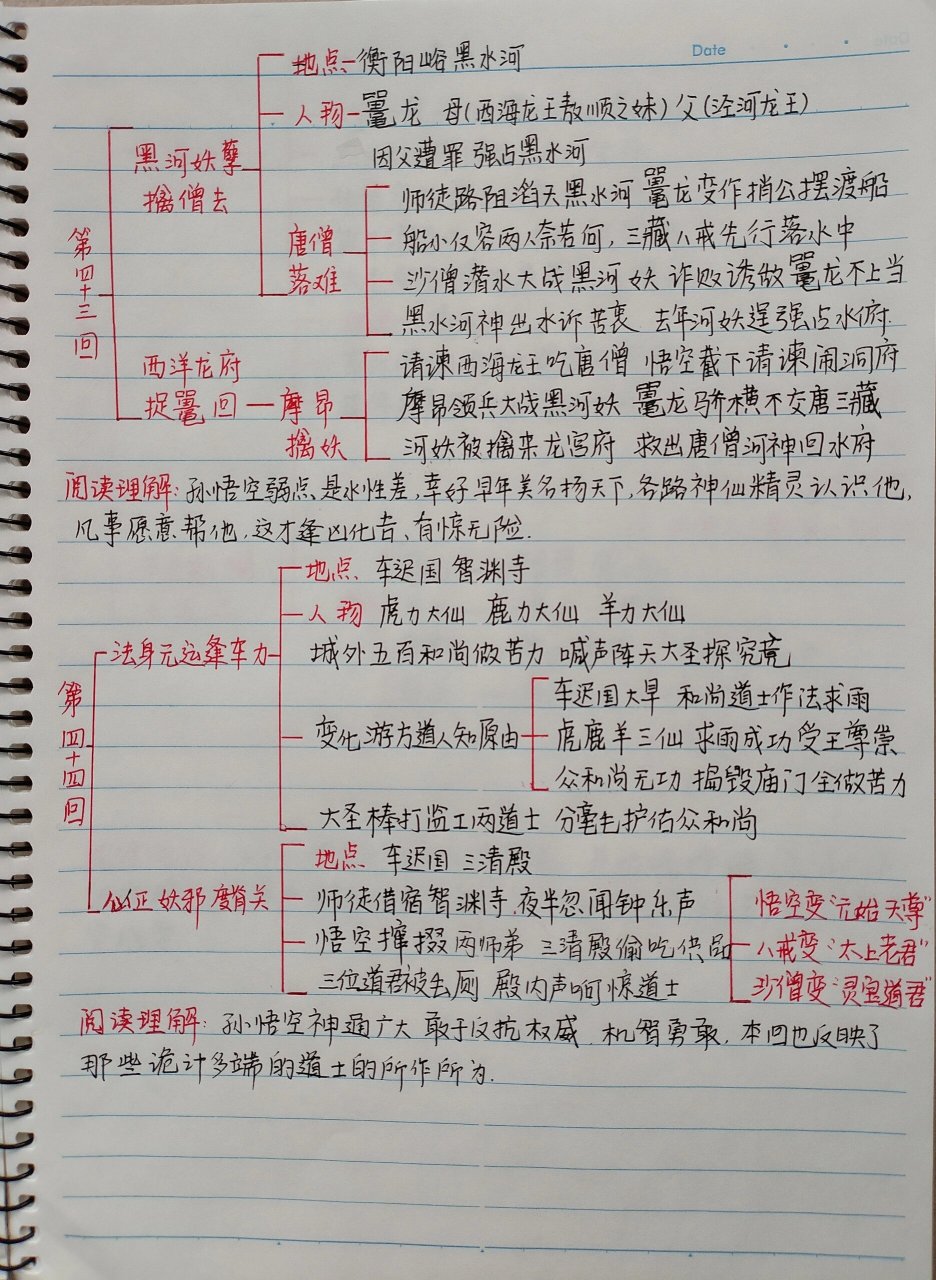 Date
地点-衡阳峪黑水河
人物-鼍龙 母(西海龙王敖顺之妹)父(泾河龙王)
因父遭罪 强占黑水河
黑河妖孽
擒僧去
师徒路阻滔天黑水河 鼍龙变作捎公摆渡船
唐僧
落难
船小仅容两人奈若何,三藏八戒先行落水中
第四十三回
沙僧潜水大战黑河妖 诈败诱敌鼍龙不上当
黑水河神出水诉苦衷 去年河妖逞强占水府.
西洋龙府
捉鼍回
请谏西海龙王吃唐僧 悟空截下请谏闹洞府
摩昂
擒妖
摩昂领兵大战黑河妖 鼍龙骄横不交唐三藏
河妖被擒来龙宫府 救出唐僧河神回水府
阅读理解:孙悟空弱点是水性差,幸好早年美名扬天下,各路神仙精灵认识他,
凡事愿意帮他,这才逢凶化吉、有惊无险.
地点 车迟国 智渊寺
人物 虎力大仙 鹿力大仙 羊力大仙
法身元运逢车力
城外五百和尚做苦力 喊声阵天大圣探究竟
第四十四回
车迟国大旱 和尚道士作法求雨
变化游方道人知原由
虎鹿羊三仙 求雨成功受王尊崇
众和尚无功 捣毁庙门全做苦力
大圣棒打监工两道士 分毫毛护佑众和尚
地点 车迟国 三清殿
心征妖邪度脊关
师徒借宿智渊寺.夜半忽闻钟乐声
悟空撺掇两师弟 三清殿偷吃供品
三位道君被丢厕 殿内声响惊道士
悟空变"元始天尊"
八戒变"太上老君"
沙僧变"灵宝道君"
阅读理解:孙悟空神通广大 敢于反抗权威.机智勇敢.本回也反映了
那些诡计多端的道士的所作所为.